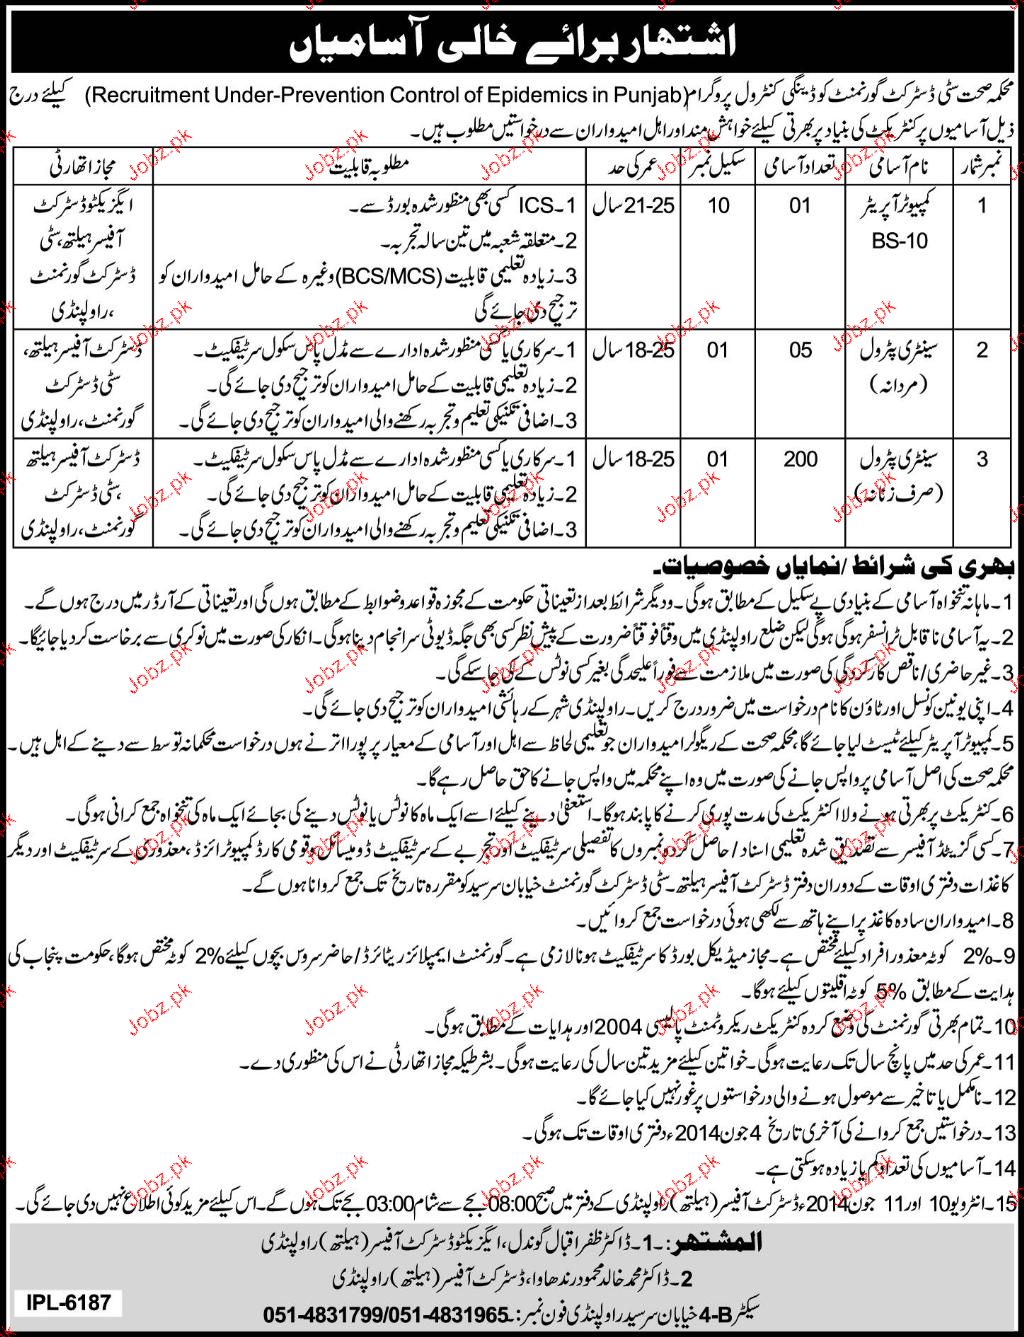 اشتہار برائے خالی آسامیاں
محکمہ صحت سٹی ڈسٹرکٹ گورنمنٹ کو ڈینگی کنٹرول پروگرام (Recruitment Under-Prevention Control of Epidemics in Punjab) کیلئے درج
ذیل آسامیوں پر کنٹریکٹ کی بنیاد پر بھرتی کیلئے خواہش مند اور اہل امیدواران سے درخواستیں مطلوب ہیں۔
نمبر شمار نام آسامی تعداد آسامی سکیل نمبر عمر کی حد مطلوبہ قابلیت مجاز اتھارٹی
1 کمپیوٹر آپریٹر 01 10 21-25 سال 1۔ ICS کسی بھی منظور شدہ بورڈ سے۔ ایگزیکٹو ڈسٹرکٹ
BS-10 2۔ متعلقہ شعبہ میں تین سالہ تجربہ۔ آفیسر ہیلتھ، سٹی
3۔ زیادہ تعلیمی قابلیت (BCS/MCS) وغیرہ کے حامل امیدواران کو ڈسٹرکٹ گورنمنٹ
ترجیح دی جائے گی ،راولپنڈی
2 سینٹری پٹرول 05 01 18-25 سال 1۔ سرکاری یا کسی منظور شدہ ادارے سے مڈل پاس سکول سرٹیفکیٹ۔ ڈسٹرکٹ آفیسر ہیلتھ،
(مردانہ) 2۔ زیادہ تعلیمی قابلیت کے حامل امیدواران کو ترجیح دی جائے گی۔ سٹی ڈسٹرکٹ
3۔ اضافی تکنیکی تعلیم و تجربہ رکھنے والی امیدواران کو ترجیح دی جائے گی۔ گورنمنٹ، راولپنڈی
3 سینٹری پٹرول 200 01 18-25 سال 1۔ سرکاری یا کسی منظور شدہ ادارے سے مڈل پاس سکول سرٹیفکیٹ۔ ڈسٹرکٹ آفیسر ہیلتھ
(صرف زنانہ) 2۔ زیادہ تعلیمی قابلیت کے حامل امیدواران کو ترجیح دی جائے گی۔ ،سٹی ڈسٹرکٹ
3۔ اضافی تکنیکی تعلیم و تجربہ رکھنے والی امیدواران کو ترجیح دی جائے گی۔ گورنمنٹ، راولپنڈی
بھری کی شرائط /نمایاں خصوصیات۔
1۔ ماہانہ تنخواہ آسامی کے بنیادی پے سکیل کے مطابق ہوگی۔ و دیگر شرائط بعد از تعیناتی حکومت کے مجوزہ قواعد و ضوابط کے مطابق ہوں گی اور تعیناتی کے آرڈر میں درج ہوں گے۔
2۔ یہ آسامی ناقابل ٹرانسفر ہوگی ہوگی لیکن ضلع راولپنڈی میں وقتاً فوقتاً ضرورت کے پیش نظر کسی بھی جگہ ڈیوٹی سرانجام دینا ہوگی۔ انکار کی صورت میں نوکری سے برخاست کر دیا جائیگا۔
3۔ غیر حاضری/ ناقص کارکردگی کی صورت میں ملازمت سے فوراً علیحدگی بغیر کسی نوٹس کے کی جا سکے گی۔
4۔ اپنی یونین کونسل اور ٹاؤن کا نام درخواست میں ضرور درج کریں۔ راولپنڈی شہر کے رہائشی امیدواران کو ترجیح دی جائے گی۔
5۔ کمپیوٹر آپریٹر کیلئے ٹیسٹ لیا جائے گا، محکمہ صحت کے ریگولر امیدواران جو تعلیمی لحاظ سے اہل اور آسامی کے معیار پر پورا اترنے ہوں درخواست محکمانہ توسط سے دینے کے اہل ہیں۔
محکمہ صحت کی اصل آسامی پر واپس جانے کی صورت میں وہ اپنے محکمہ میں واپس جانے کا حق حاصل رہے گا۔
6۔ کنٹریکٹ پر بھرتی ہونے والا کنٹریکٹ کی مدت پوری کرنے کا پابند ہوگا۔ استعفیٰ دینے کیلئے اسے ایک ماہ کا نوٹس یا نوٹس دینے کی بجائے ایک ماہ کی تنخواہ جمع کرانی ہوگی۔
7۔ کسی گزیٹڈ آفیسر سے تصدیق شدہ تعلیمی اسناد/ حاصل کردہ نمبروں کا تفصیلی سرٹیفکیٹ اور تجربے کے سرٹیفکیٹ ڈومیسائل و قومی کارڈ کمپیوٹرائزڈ، معذوری کے سرٹیفکیٹ اور دیگر
کاغذات دفتری اوقات کے دوران دفتر ڈسٹرکٹ آفیسر ہیلتھ۔ سٹی ڈسٹرکٹ گورنمنٹ خیابان سرسید کو مقررہ تاریخ تک جمع کروانا ہوں گے۔
8۔ امیدواران سادہ کاغذ پر اپنے ہاتھ سے لکھی ہوئی درخواست جمع کروائیں۔
9۔ 2% کوٹہ معذور افراد کیلئے مختص ہے۔ مجاز میڈیکل بورڈ کا سرٹیفکیٹ ہونا لازمی ہے۔ گورنمنٹ ایمپلائز ریٹائرڈ/ حاضر سروس بچوں کیلئے 2% کوٹہ مختص ہوگا، حکومت پنجاب کی
ہدایت کے مطابق 5% کوٹہ اقلیتوں کیلئے ہوگا۔
10۔ تمام بھرتی گورنمنٹ کی وضع کردہ کنٹریکٹ ریکروٹمنٹ پالیسی 2004 اور ہدایات کے مطابق ہوگی۔
11۔ عمر کی حد میں پانچ سال تک رعایت ہوگی۔ خواتین کیلئے مزید تین سال کی رعایت ہوگی۔ بشرطیکہ مجاز اتھارٹی نے اس کی منظوری دے۔
12۔ نامکمل یا تاخیر سے موصول ہونے والی درخواستوں پر غور نہیں کیا جائے گا۔
13۔ درخواستیں جمع کروانے کی آخری تاریخ 4 جون 2014ء دفتری اوقات تک ہوگی۔
14۔ آسامیوں کی تعداد کم یا زیادہ ہو سکتی ہے۔
15۔ انٹرویو 10 اور 11 جون 2014ء ڈسٹرکٹ آفیسر (ہیلتھ) راولپنڈی کے دفتر میں صبح 08:00 بجے سے شام 03:00 بجے تک ہوں گے۔ اس کیلئے مزید کوئی اطلاع نہیں دی جائے گی۔
المشتھر:۔ 1۔ ڈاکٹر ظفر اقبال گوندل، ایگزیکٹو ڈسٹرکٹ آفیسر (ہیلتھ) راولپنڈی
2۔ ڈاکٹر محمد خالد محمود رندھاوا، ڈسٹرکٹ آفیسر (ہیلتھ) راولپنڈی
سیکٹر 4-B خیابان سرسید راولپنڈی فون نمبر:۔ 051-4831799/051-4831965
IPL-6187